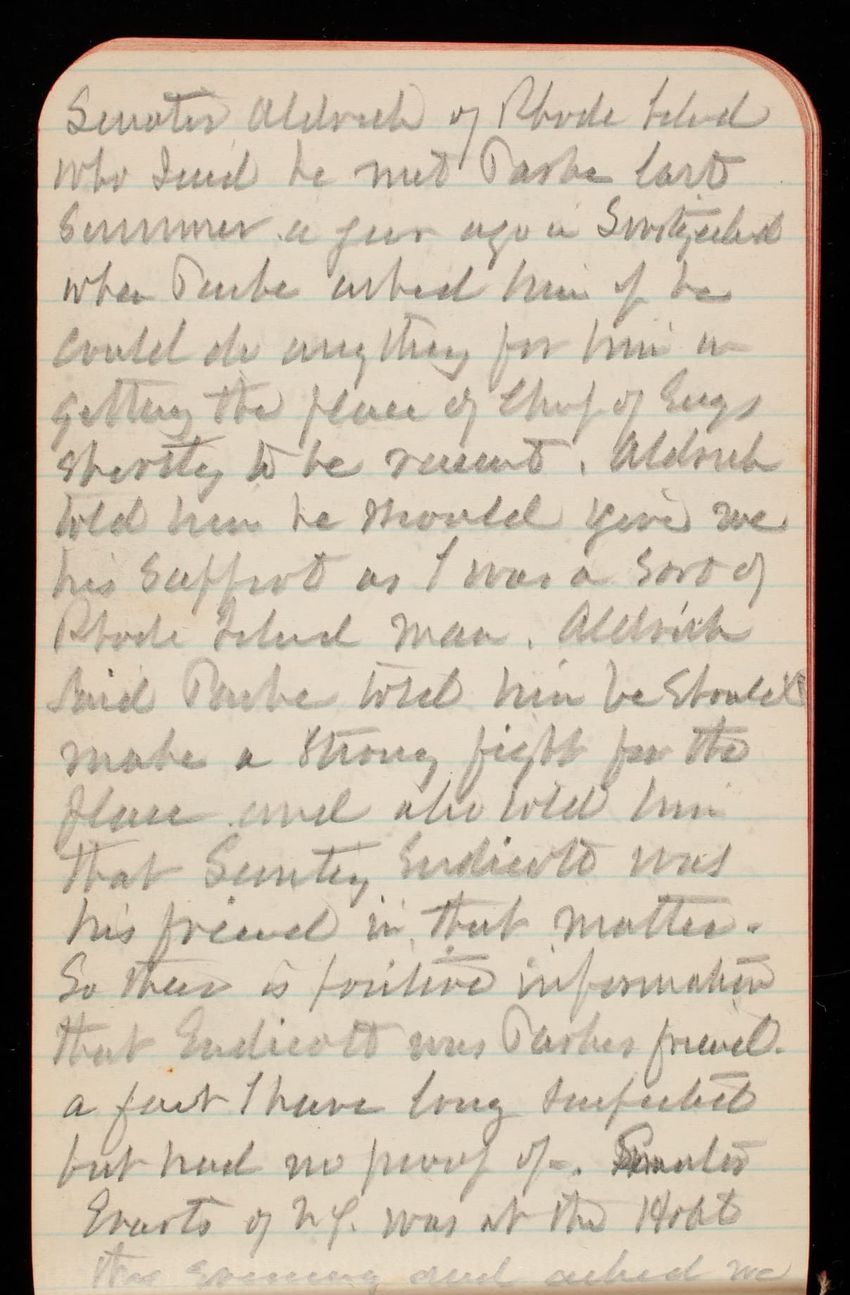 Senator Aldrich of Rhode Island
who said he met Parke last
Summer a year ago in Switzerland
when Parke asked him if he
could do anything for him in
getting the place of Chief of Engs
shortly to be vacant. Aldrich
told him he should give me
his support as I was a sort of
Rhode Island man. Aldrich
said Parke told him he should
make a strong fight for the
place and also told him
that Secretary Endicott was
his friend in that matter.
So there is positive information
that Endicott was Parkes friend.
a fact I have long suspected
but had no proof of. Senator
Evarts of N.Y. was at the Hotel
this evening and asked me